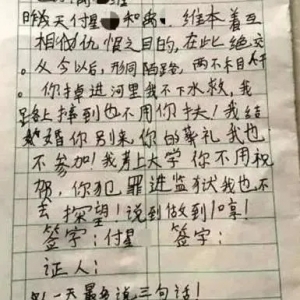 昨天付星 和 维本着互
相仇恨之目的,在此绝交
。从今以后,形同陌路,两不相
你掉进河里我不下水救,我
路上摔到也不用你扶!我结
婚你别来,你的葬礼我也
不参加!我考上大学你不用祝
贺,你犯罪进监狱我也不
去探望!说到做到
签字:付星 签字:
证人:
一天最多说三句话!